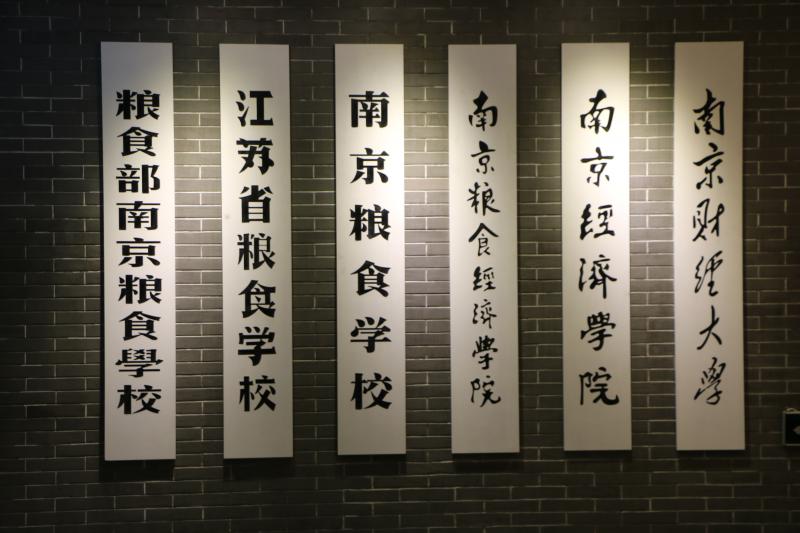 粮食部南京粮食學校
江苏省粮食学校
南京粮食学校
南京粮食經濟學院
南京經濟學院
南京财经大學